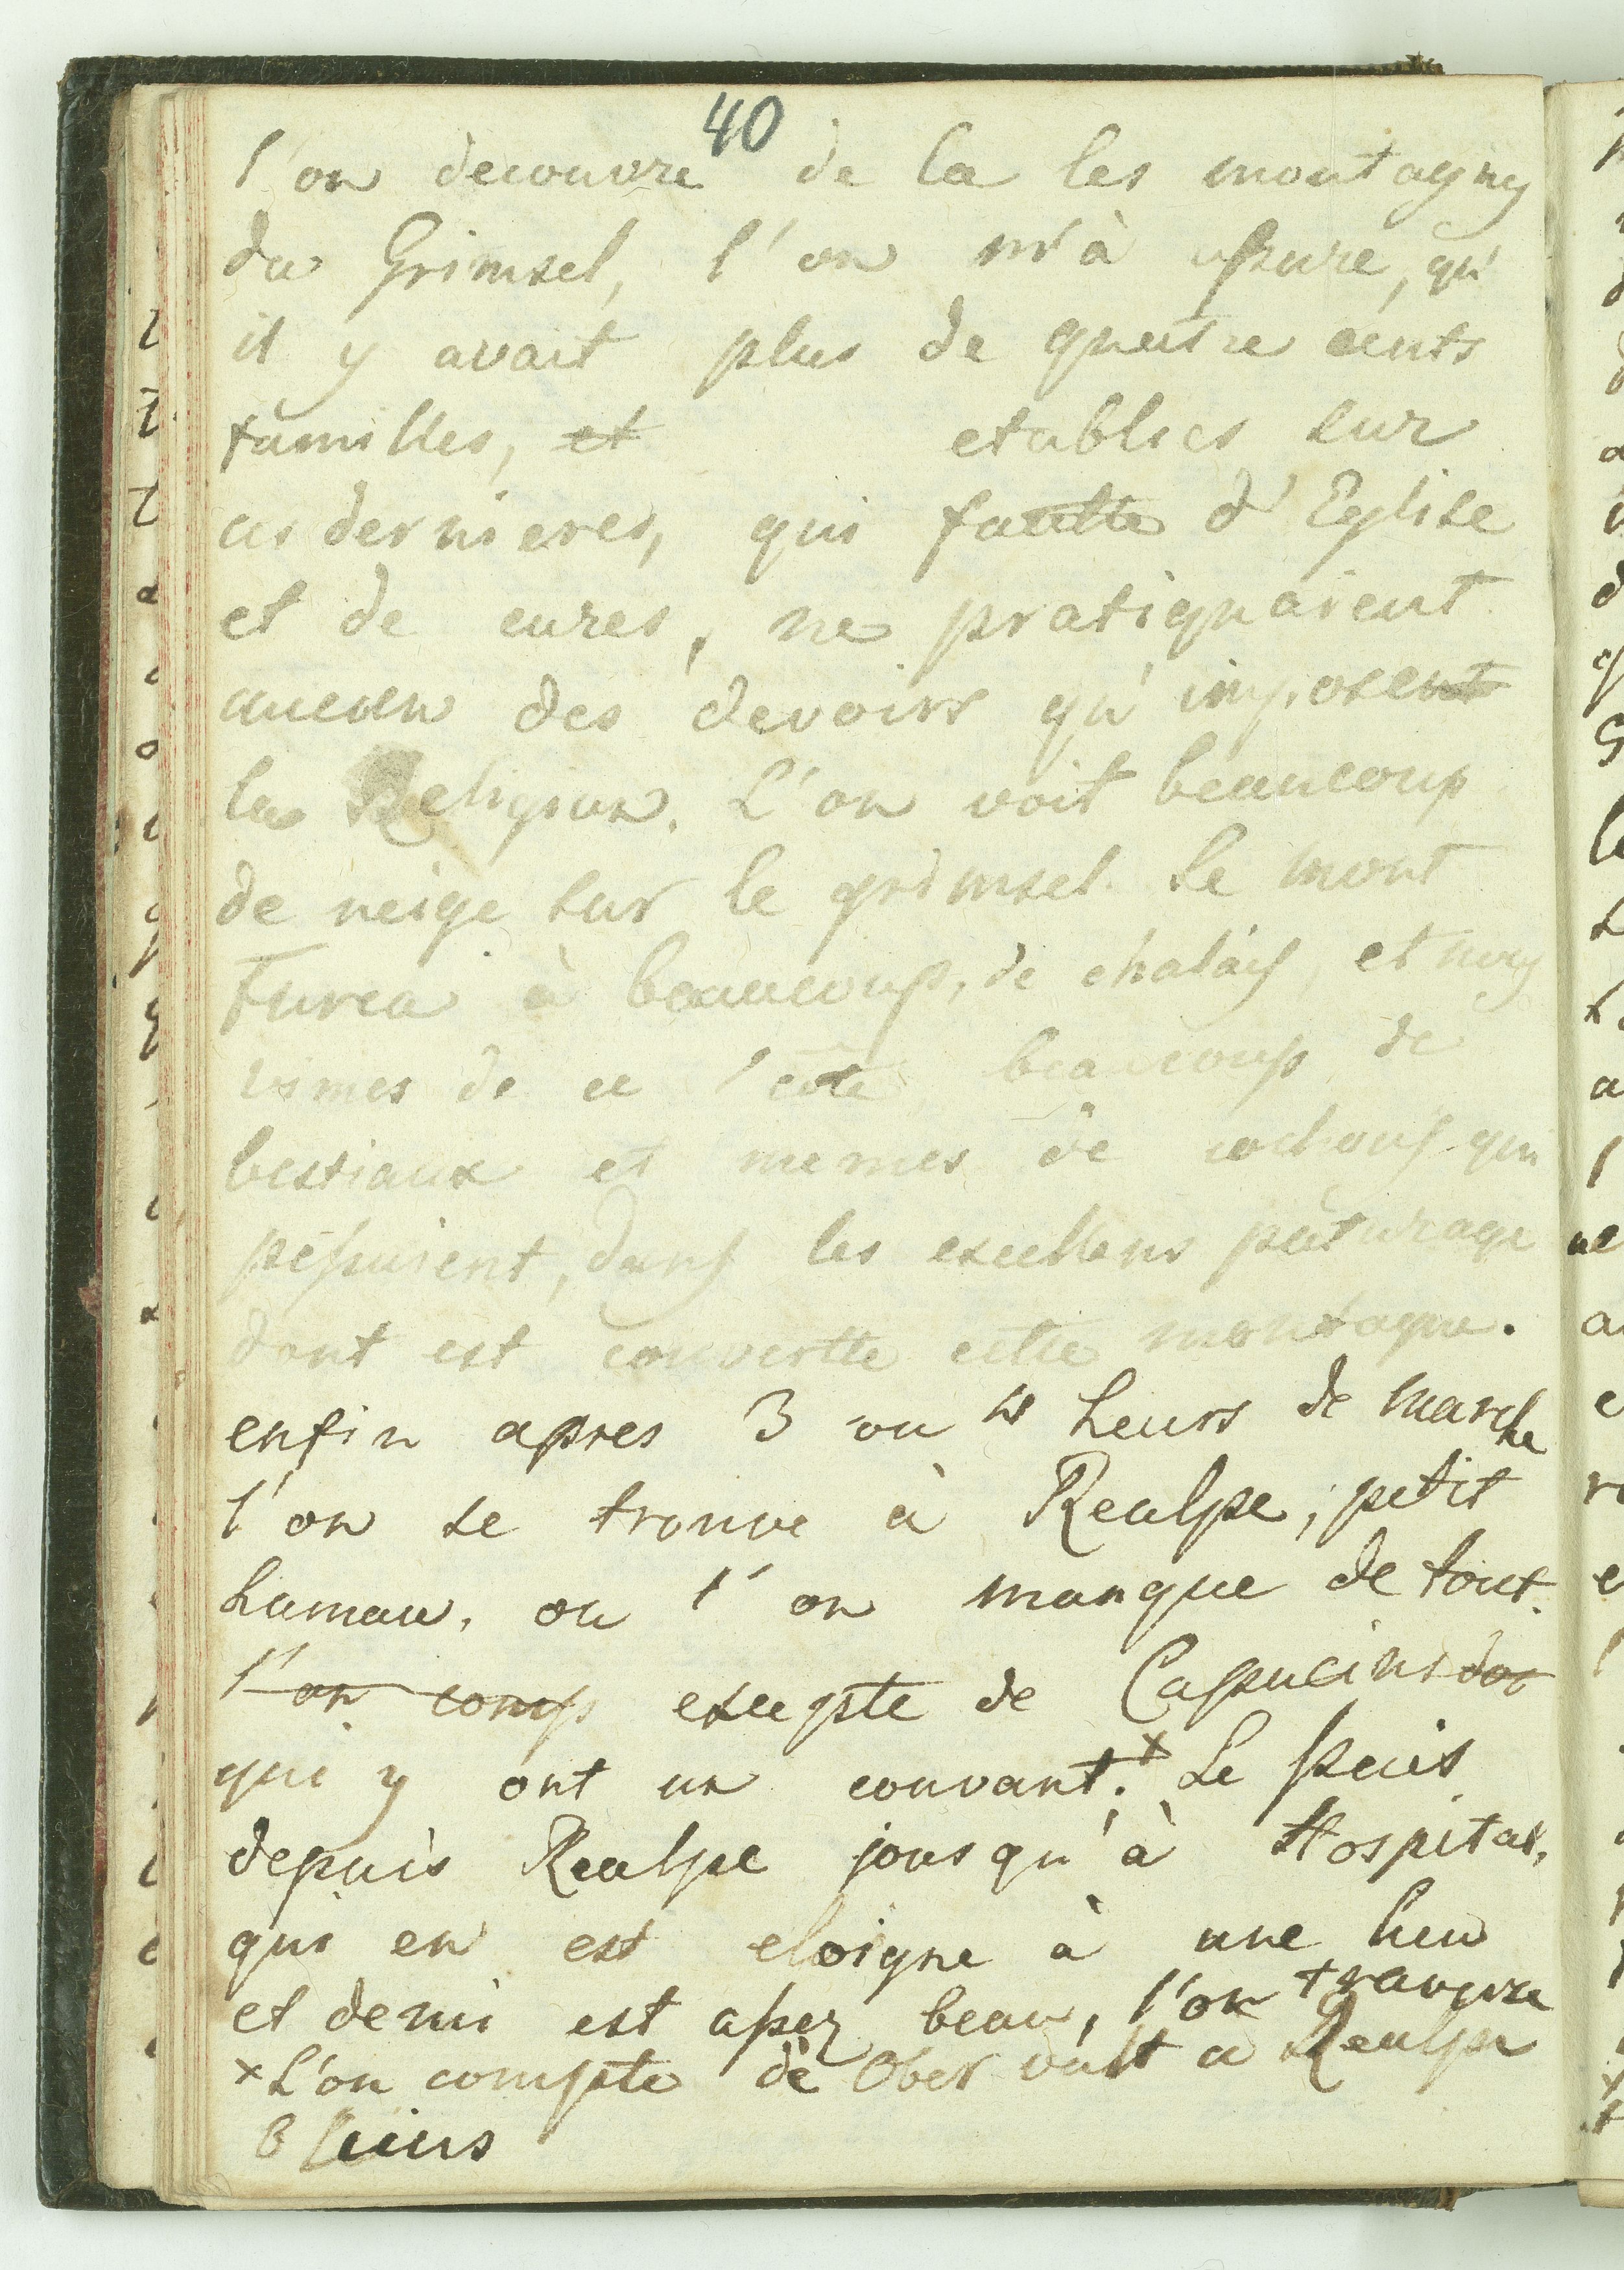 40
l'on decouvre de la les montagnes
du Grimsel, l'on m'à assure, qu'
il y avait plus de quatre cents
familles, et etablies sur
ces dernieres, qui faulte d'Eglise
et de cures, ne pratiquaient
aucun des devoirs qu'imposent
la Religion. L'on voit beaucoup
de neige sur le grimsel. Le mont
Furca à beaucoup, de chalais, et nous
vimes de ce côte beaucoup de
bestiaux et memes de cochons qui
pessaient, dans les excellens paturage
dont est couvertte cette montagne.
enfin apres 3 ou 4 heurs de marche
l'on se trouve à Realpe, petit
hamau, ou l'on manque de tout.
l'on comp exepte de Capucins
qui y ont un couvant.x Le pais
depuis Realpe jousqu'à Hospital,
qui en est eloigne à une lieu
et demi est assez beau, l'on traverse
x L'on compte de Ober valt a Realpe
8 lieus